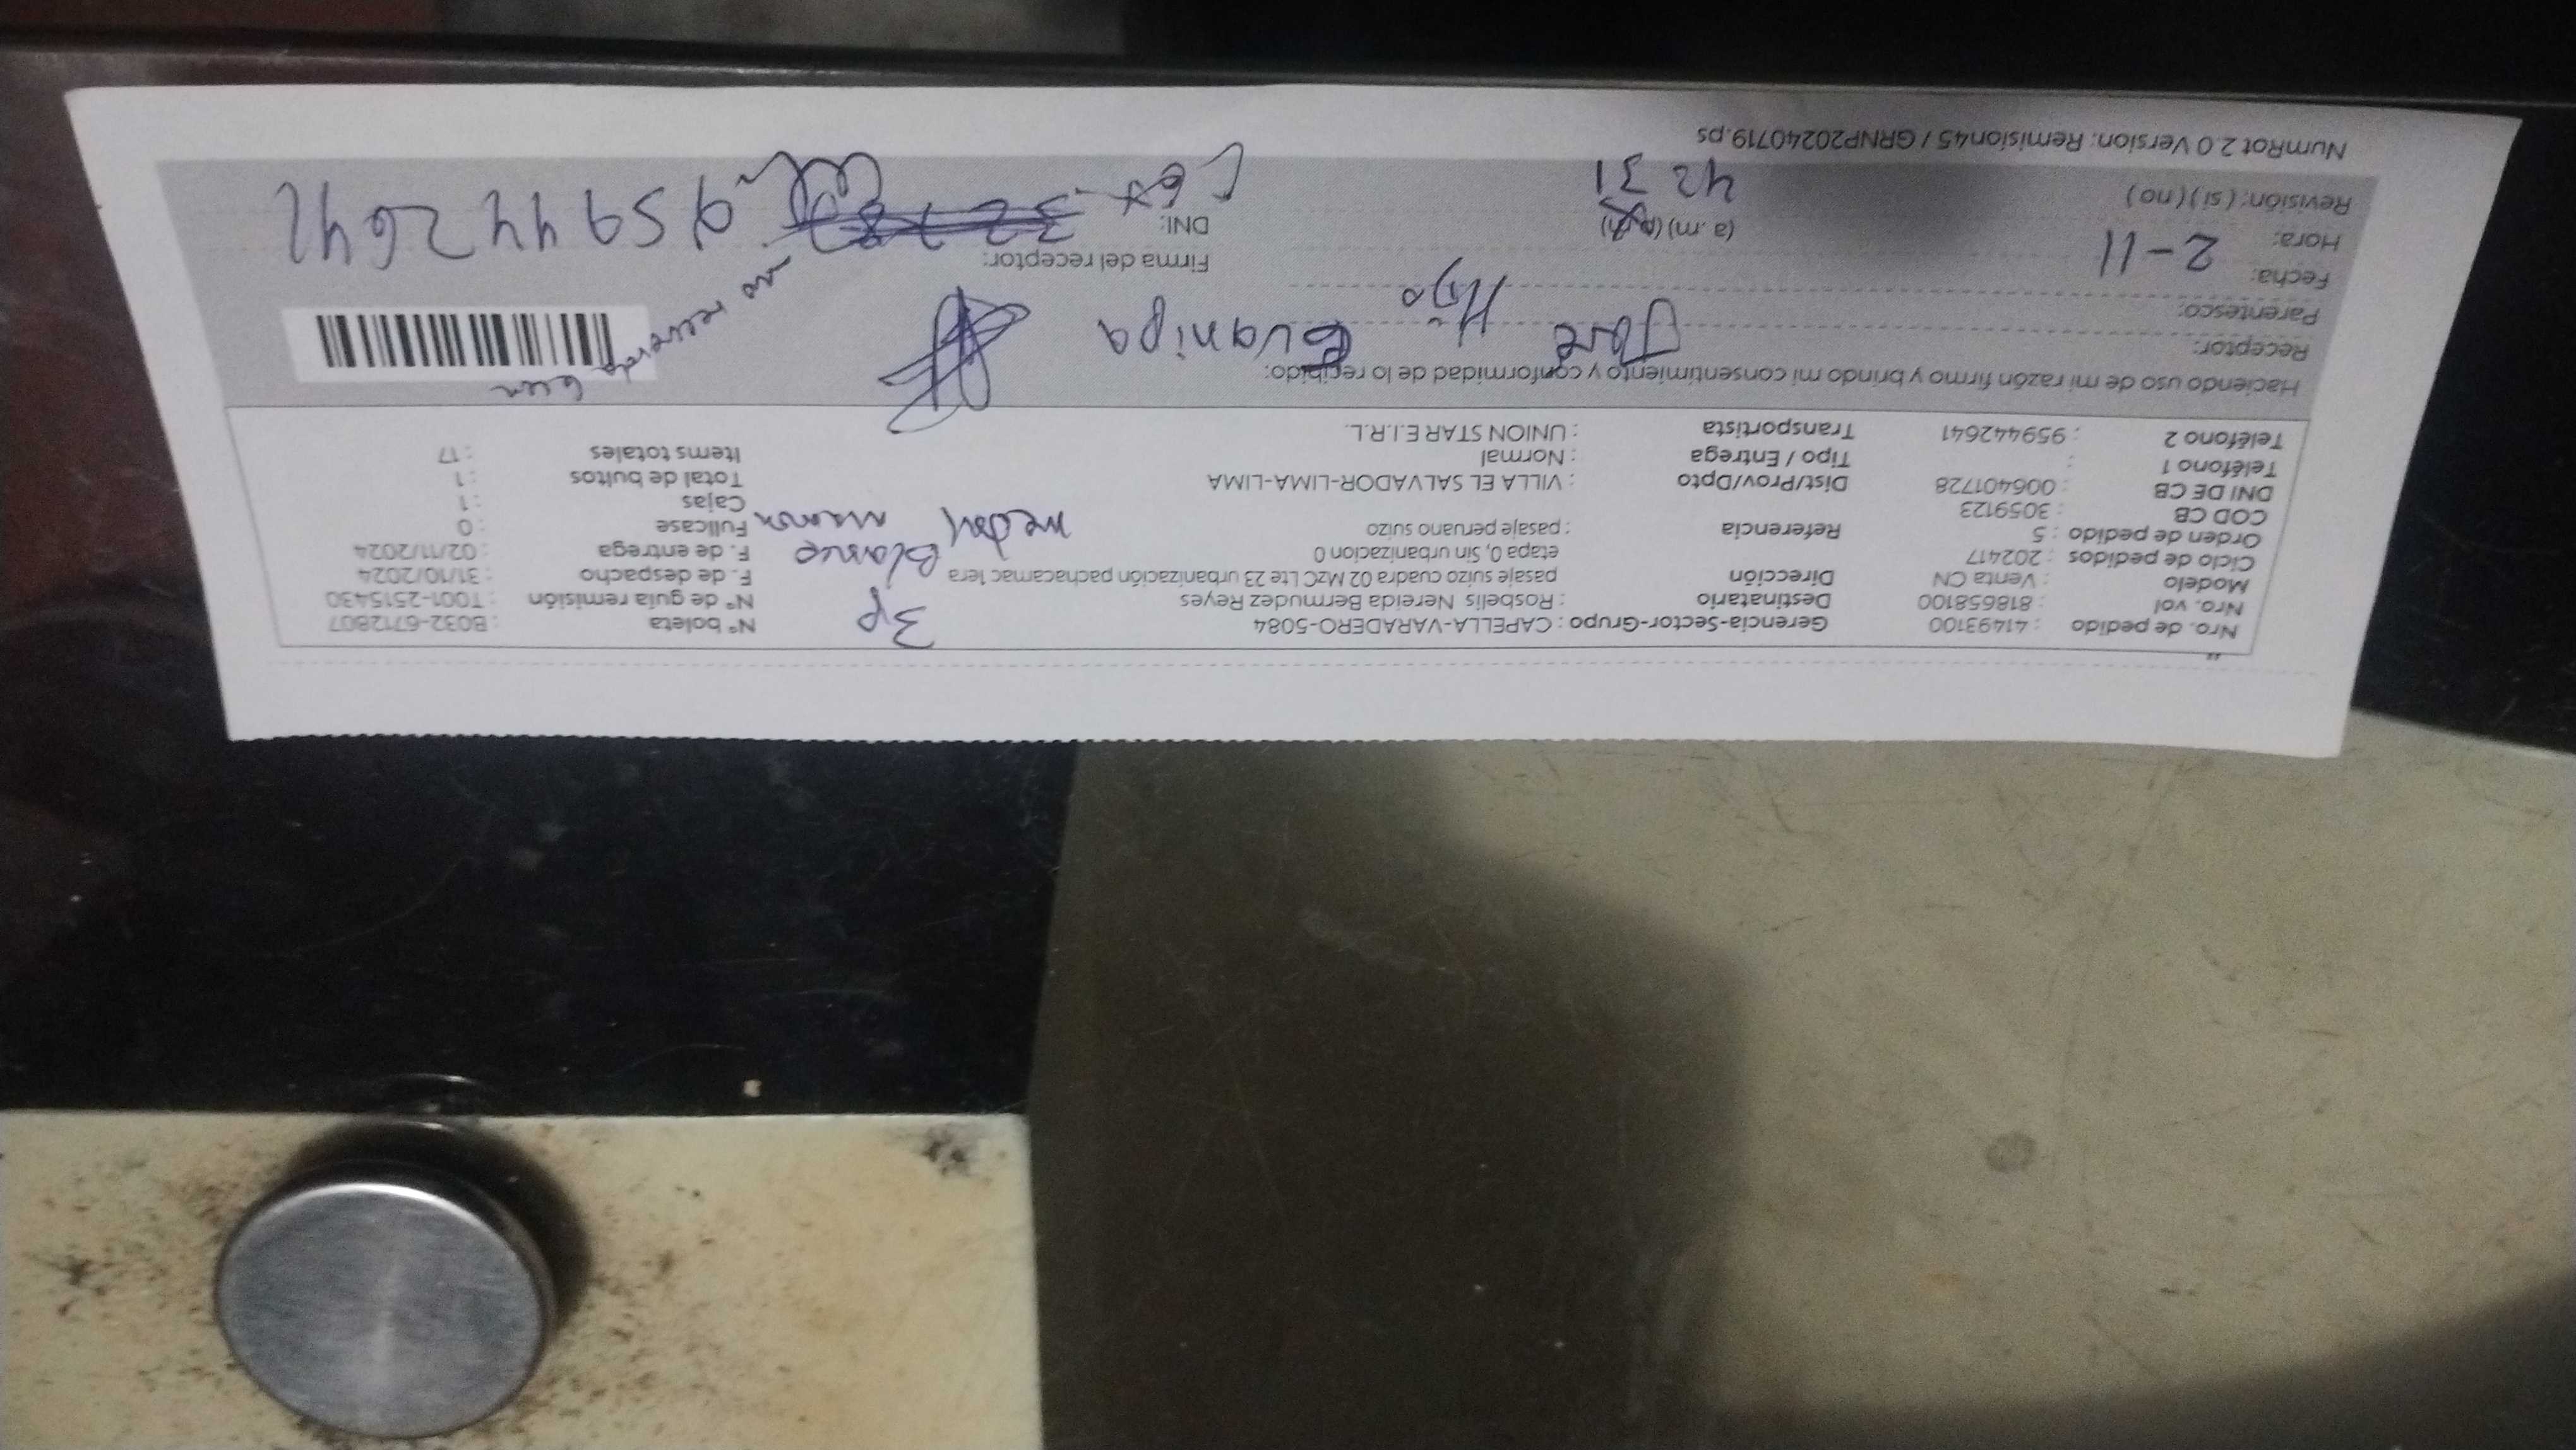 Nro. de pedido : 41493100 Gerencia-Sector-Grupo : CAPELLA-VARADERO-5084 N° boleta : B032-6712807
Nro. vol : 818658100 Destinatario : Rosbelis Nereida Bermudez Reyes N° de guia remisión : T001-2515430
Modelo : Venta CN Dirección pasaje suizo cuadra 02 MzC Lte 23 urbanización pachacamac 1era F. de despacho : 31/10/2024
Ciclo de pedidos : 202417 etapa 0, Sin urbanizacion 0 F. de entrega : 02/11/2024
Orden de pedido : 5 Referencia : pasaje peruano suizo Fullcase : 0
COD CB : 3059123 Cajas : 1
DNI DE CB : 006401728 Dist/Prov/Dpto : VILLA EL SALVADOR-LIMA-LIMA Total de bultos : 1
Teléfono 1 : Tipo / Entrega : Normal Items totales : 17
Teléfono 2 : 959442641 Transportista : UNION STAR E.I.R.L.
3p
Blanco
Haciendo uso de mi razón firmo y brindo mi consentimiento y conformidad de lo recibido:
Receptor: José Guanipa
Parentesco: Hijo
Fecha: 2-11 Firma del receptor:
no recuerda
Hora: (a.m) (p.m) DNI:
Cel 959442641
Revisión: (si) (no) 4231
NumRot 2.0 Version: Remision45 / GRNP20240719.ps